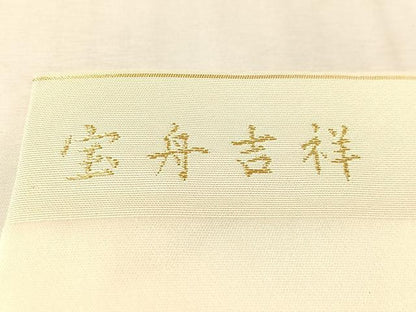 宝舟吉祥